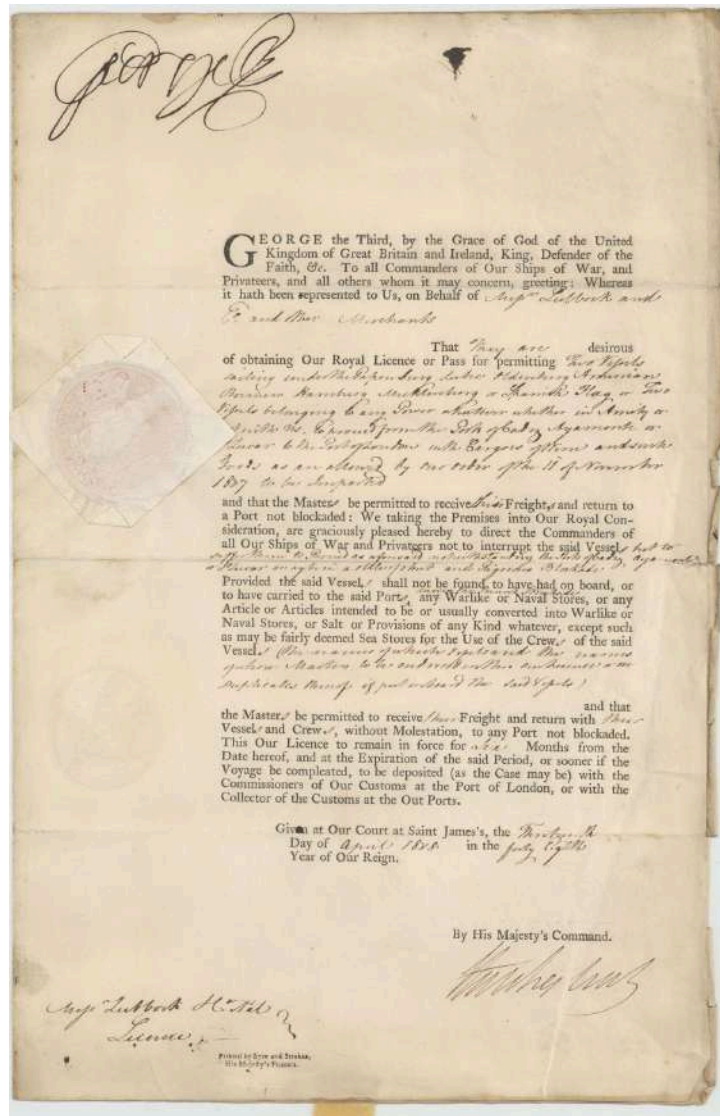 George R
GEORGE the Third, by the Grace of God of the United
Kingdom of Great Britain and Ireland, King, Defender of the
Faith, &c. To all Commanders of Our Ships of War, and
Privateers, and all others whom it may concern, greeting: Whereas
it hath been represented to Us, on Behalf of Messrs Lubbock and
Co and other Merchants
That They are desirous
of obtaining Our Royal Licence or Pass for permitting Two Vessels
sailing under the Papenburg Oldenburg
Bremen Hamburg Mecklenburg or Flag or Two
Vessels belonging to any Power whatever whether in Amity or
with Us to proceed from the Port of Cadiz Ayamonte or
to the Port of London with Cargoes of and such
Goods as are allowed by our order of the 11 of November
1807 to be Imported
and that the Masters be permitted to receive their Freights and return to
a Port not blockaded: We taking the Premises into Our Royal Con-
sideration, are graciously pleased hereby to direct the Commanders of
all Our Ships of War and Privateers not to interrupt the said Vessels but to
them to proceed as aforesaid notwithstanding the Port of Cadiz Ayamonte
or may be in a state of Blockade
Provided the said Vessels shall not be found to have had on board, or
to have carried to the said Ports, any Warlike or Naval Stores, or any
Article or Articles intended to be or usually converted into Warlike or
Naval Stores, or Salt or Provisions of any Kind whatever, except such
as may be fairly deemed Sea Stores for the Use of the Crews of the said
Vessels (the names of which Vessels and the names
of whose Masters to be endorsed on
Duplicates thereof if put on board the said Vessels)
and that
the Masters be permitted to receive their Freight and return with their
Vessels and Crews, without Molestation, to any Port not blockaded.
This Our Licence to remain in force for Six Months from the
Date hereof, and at the Expiration of the said Period, or sooner if the
Voyage be compleated, to be deposited (as the Case may be) with the
Commissioners of Our Customs at the Port of London, or with the
Collector of the Customs at the Out Ports.
Given at Our Court at Saint James's, the
Day of April 1808 in the forty Eighth
Year of Our Reign.
By His Majesty's Command.
Hawkesbury
Messrs Lubbock
Licence
Printed by Eyre and Strahan,
His Majesty's Printers.